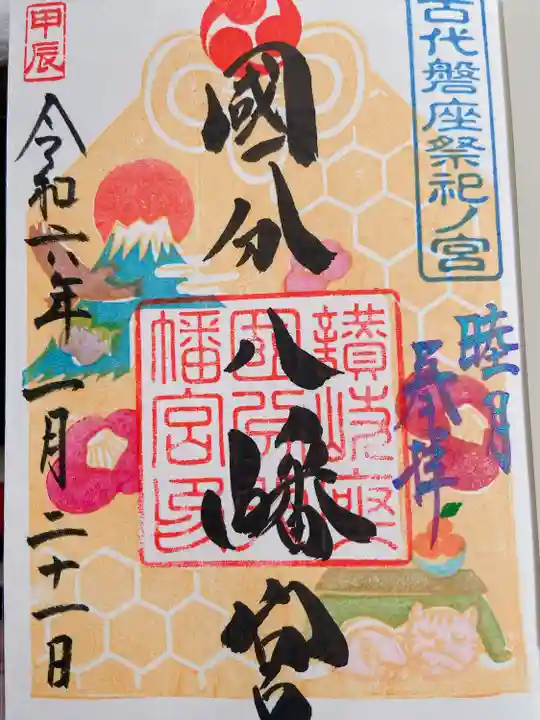 古代磐座祭祀ノ宮
睦月
奉拝
國分八幡宮
讃岐
國分八
幡宮印
甲辰
令和六年一月二十一日